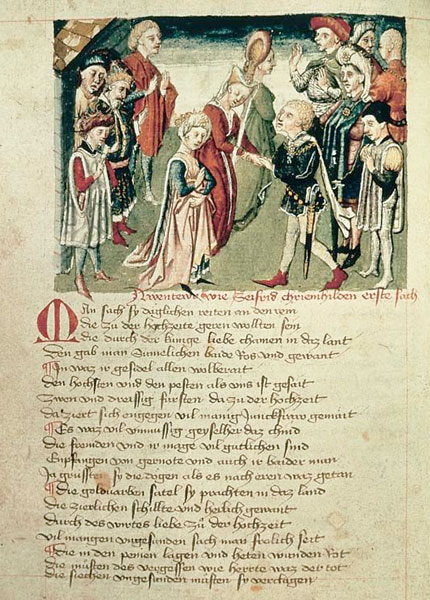 Awenteur wie Seifrid chriemhilden erste sach
Man sach sy däglichen reiten an den rein
die zu der hochzeite geren wollten sein
die durch der kunige liebe chamen in daz lant
den gab man sumelichen baide ros und gewant
In waz ir gesidel allen wolberait
den hochsten und den pesten als uns ist gesait
Zwen und dreissig fursten da zu der hochzeit
da ziert sich engegen vil manig junckfraw gemait
Es waz vil unmussig geyselher daz chind
die fremden und ir mage vil gutlichen sind
Enpfangen von gernote und auch ir baider man
Ja grussten sy die degen als es nach eren waz getan
die goldvarben satel sy prachten in daz land
die zierlichen schillte und herlich gewant
durch des wirtes liebe zu der hochzeit
vil mangen ungesunden sach man frolich seit
die in den peten lagen und heten wunden not
die musten des vergessen wie herrte waz der tot
die siechen ungesunden musten sy verclagen